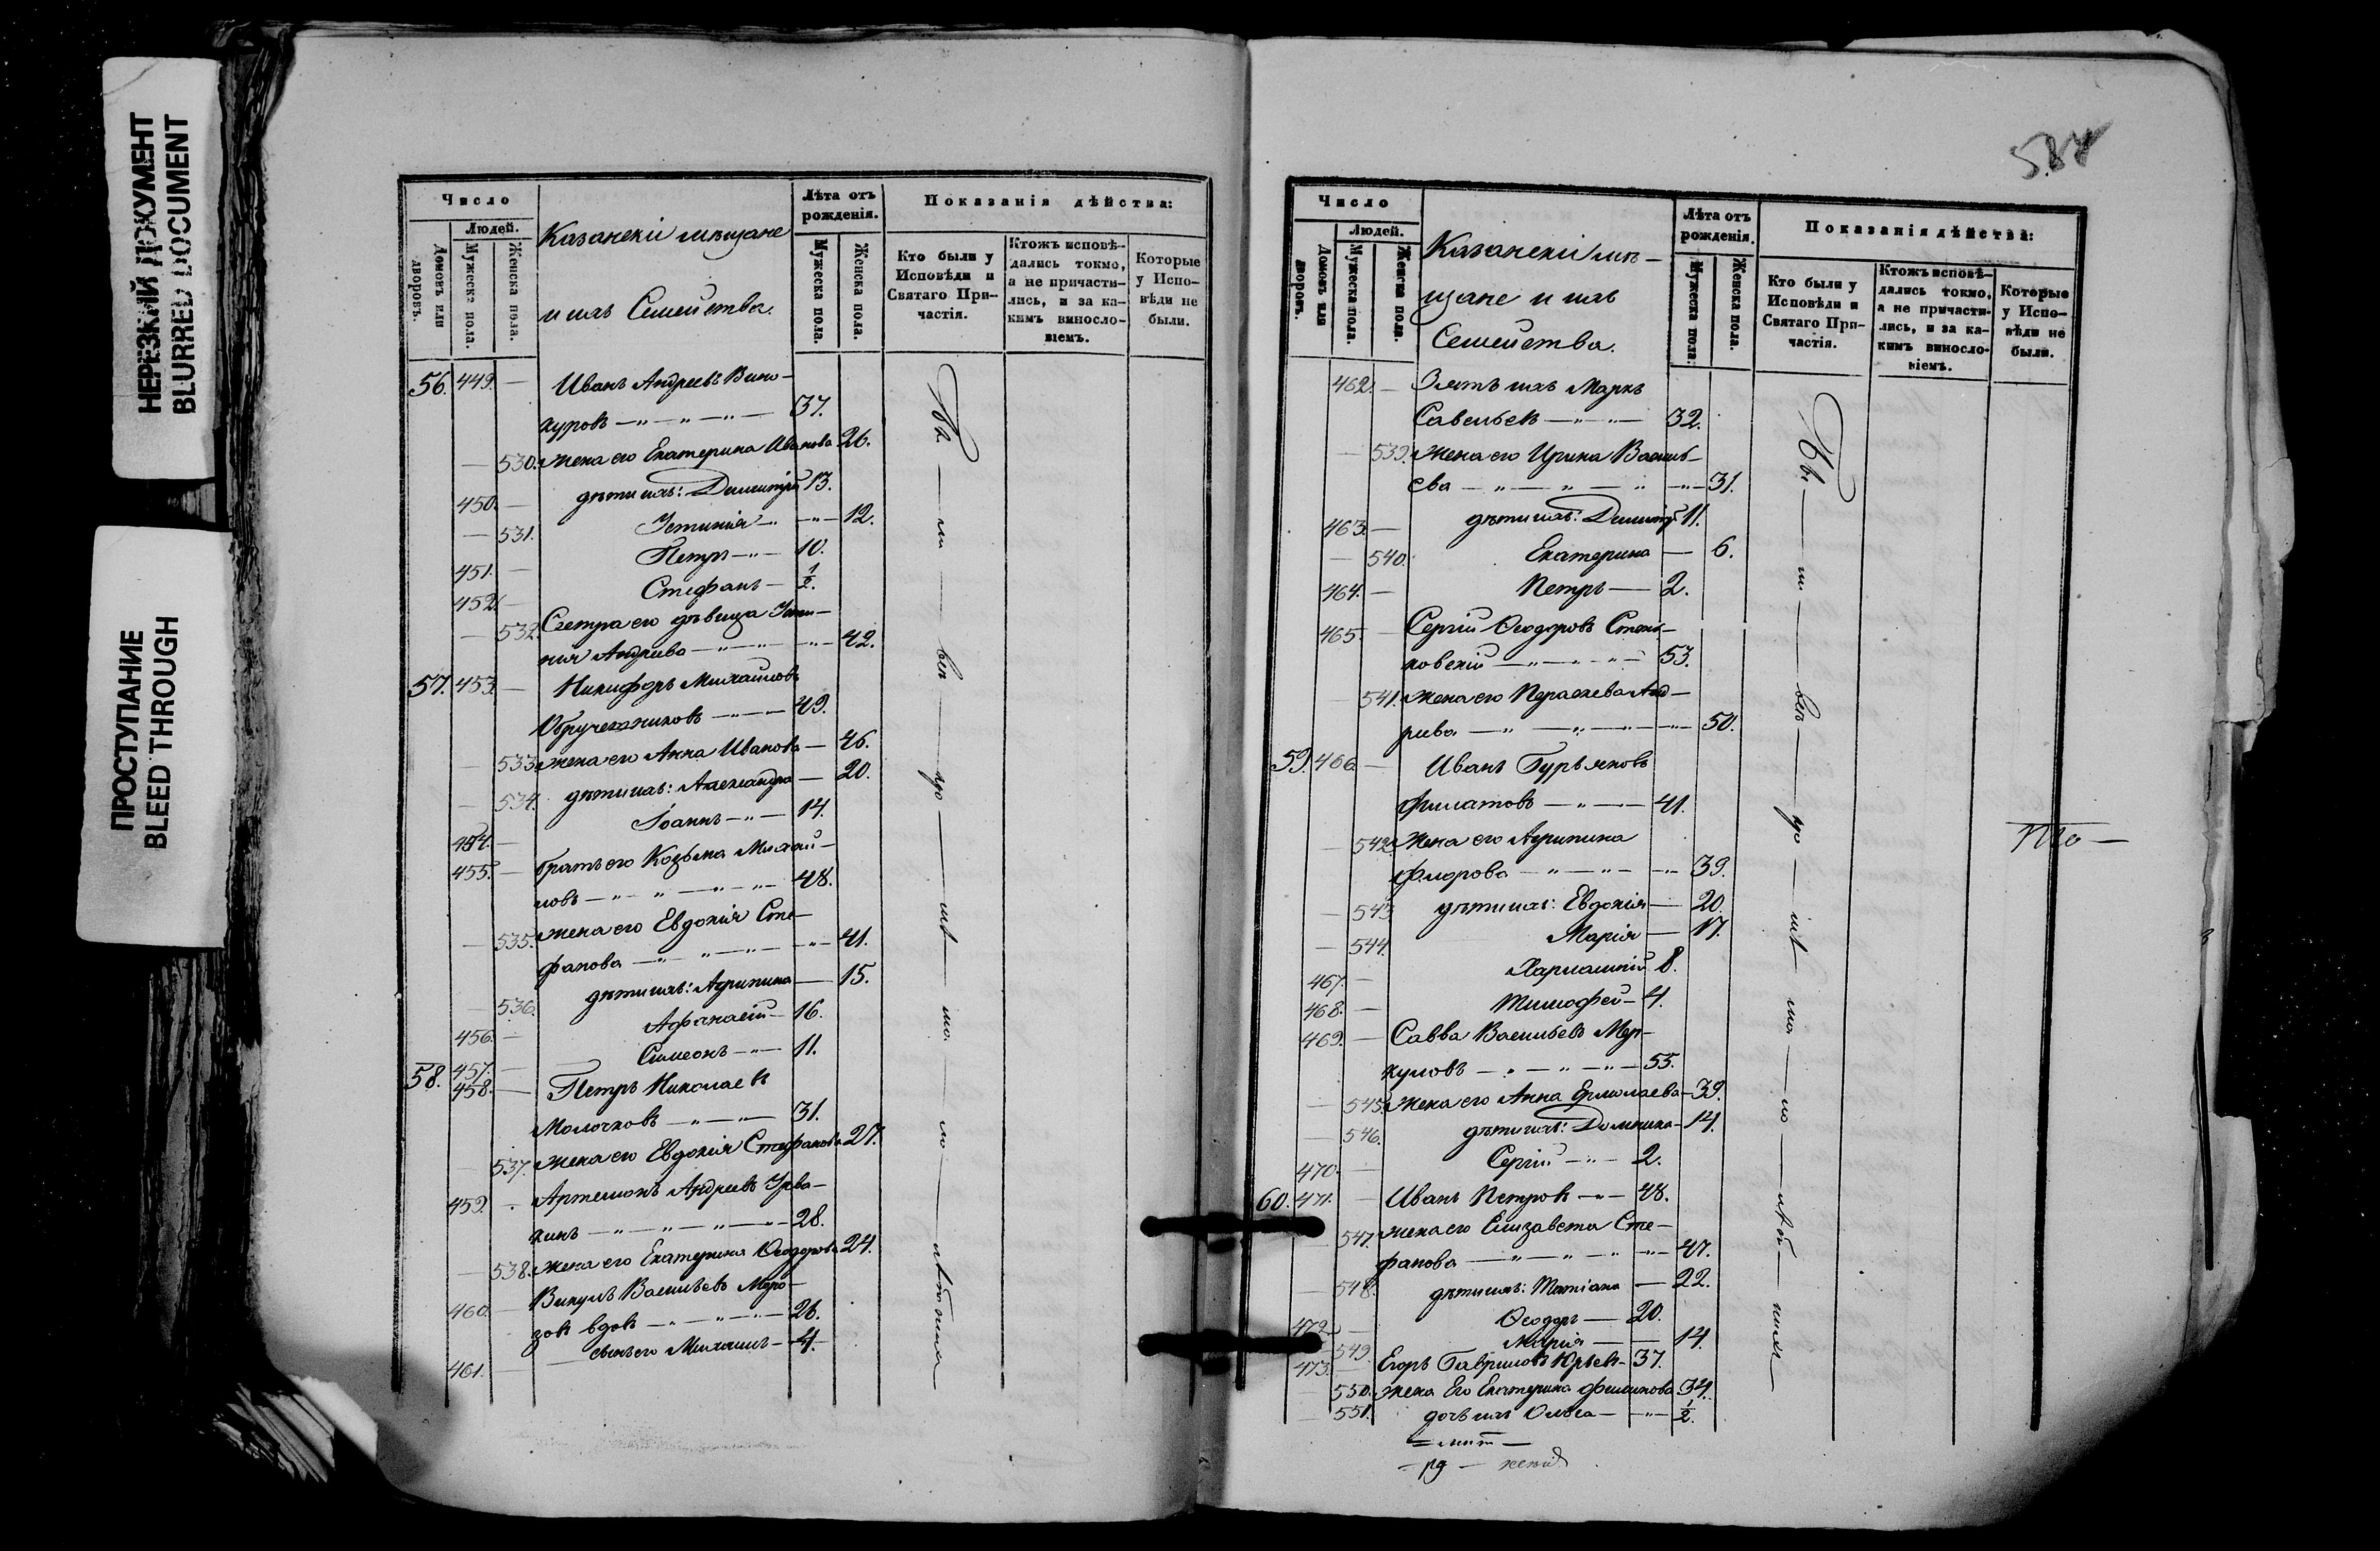 НЕРЕЗКИЙ ДОКУМЕНТ
BLURRED DOCUMENT
ПРОСТУПАНИЕ
BLEED THROUGH
Число
Людей.
Домовъ или дворовъ.
Мужеска пола.
Женска пола.
Казанскіи мѣщане
и ихъ Семейства.
Лѣта отъ рожденія.
Мужеска пола.
Женска пола.
Показанія дѣйства:
Кто были у Исповѣди и Святаго Причастія.
Ктожъ исповѣдались токмо, а не причастились, и за какимъ винословіемъ.
Которые у Исповѣди не были.
56. 449. — Иванъ Андреевъ Вино-
куровъ — 37.
— 530. жена его Екатерина Иванова 26.
450. — дѣти ихъ: Димитрій 13.
— 531. Устинія — 12.
451. — Петръ — 10.
452. — Стефанъ — 1/2.
— 532. Сестра его дѣвица Усти-
нія Андреева — 42.
57. 453. — Никифоръ Михайловъ
Обручениковъ — 49.
— 533. жена его Анна Иванова — 46.
— 534. дѣти ихъ: Александра — 20.
454. — Іоаннъ — 14.
455. — братъ его Козьма Михай-
ловъ — 48.
— 535. жена его Евдокія Сте-
фанова — 41.
— 536. дѣти ихъ: Агрипина — 15.
456. — Афанасій — 16.
457. — Симеонъ — 11.
58. 458. — Петръ Николаевъ
Молочковъ — 31.
— 537. жена его Евдокія Стефанова 27.
459. — Артемонъ Андреевъ
кинъ — 28.
— 538. жена его Екатерина Ѳеодорова 24.
460. — Викулъ Васильевъ Моро-
зовъ вдовъ — 26.
461. — сынъ его Михаилъ — 4.
584
Число
Людей.
Домовъ или дворовъ.
Мужеска пола.
Женска пола.
Казанскіи мѣ-
щане и ихъ
Семейства.
Лѣта отъ рожденія.
Мужеска пола.
Женска пола.
Показанія дѣйства:
Кто были у Исповѣди и Святаго Причастія.
Ктожъ исповѣдались токмо, а не причастились, и за какимъ винословіемъ.
Которые у Исповѣди не были.
462. — Зять ихъ Маркъ
Савельевъ — 32.
— 539. жена его Ирина Василь-
ева — 31.
463. — дѣти ихъ: Димитрій 11.
— 540. Екатерина — 6.
464. — Петръ — 2.
465. — Сергій Ѳеодоровъ
ковскій — 53.
541. жена его Параскева Анд-
реева — 50.
59. 466. — Иванъ Гурьяновъ
Филатовъ — 41.
— 542. жена его Агрипина
Флорова — 39.
— 543. дѣти ихъ: Евдокія — 20.
— 544. Марія — 17.
467. — Харлампій 8.
468. — Тимофей — 4.
469. — Савва Васильевъ Мер-
куловъ — 55.
— 545. жена его Анна Ермолаева — 39.
— 546. дѣти ихъ: Домника — 14.
470. — Сергій — 2.
60. 471. — Иванъ Петровъ — 48.
— 547. жена его Елизавета Сте-
фанова — 47.
— 548. дѣти ихъ: Татіана — 22.
472. — Ѳеодоръ — 20.
— 549. Марія — 14.
473. — Егоръ Гавриловъ — 37.
550. жена Его Екатерина Филипова 34.
— 551. дочь ихъ Ольга — 1/2.